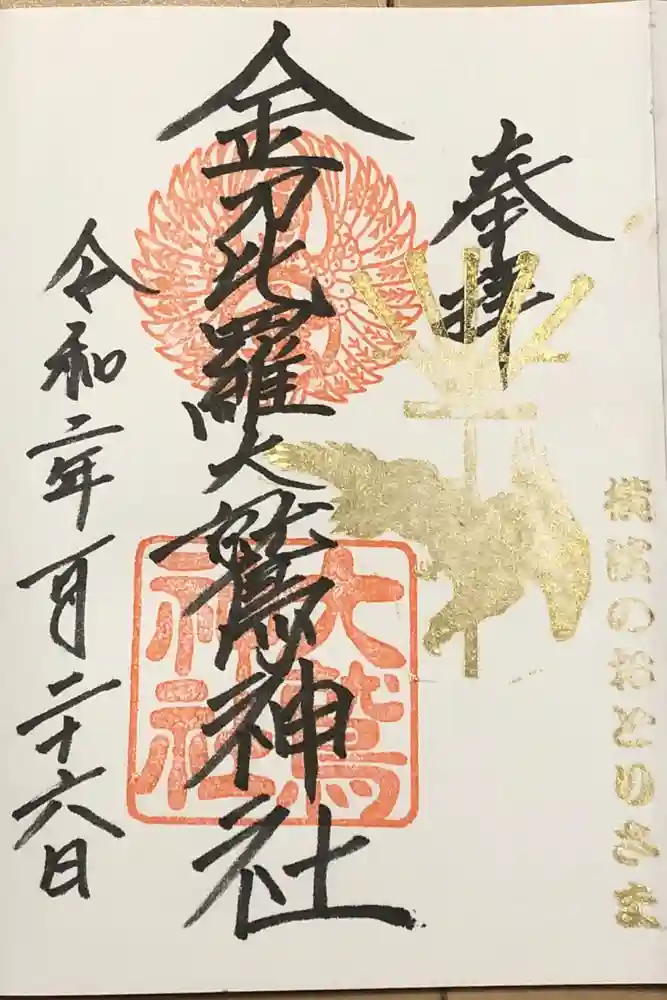 横濱のおとりさま
奉拝
金刀比羅大鷲神社
大鷲
神社
令和二年一月二十六日